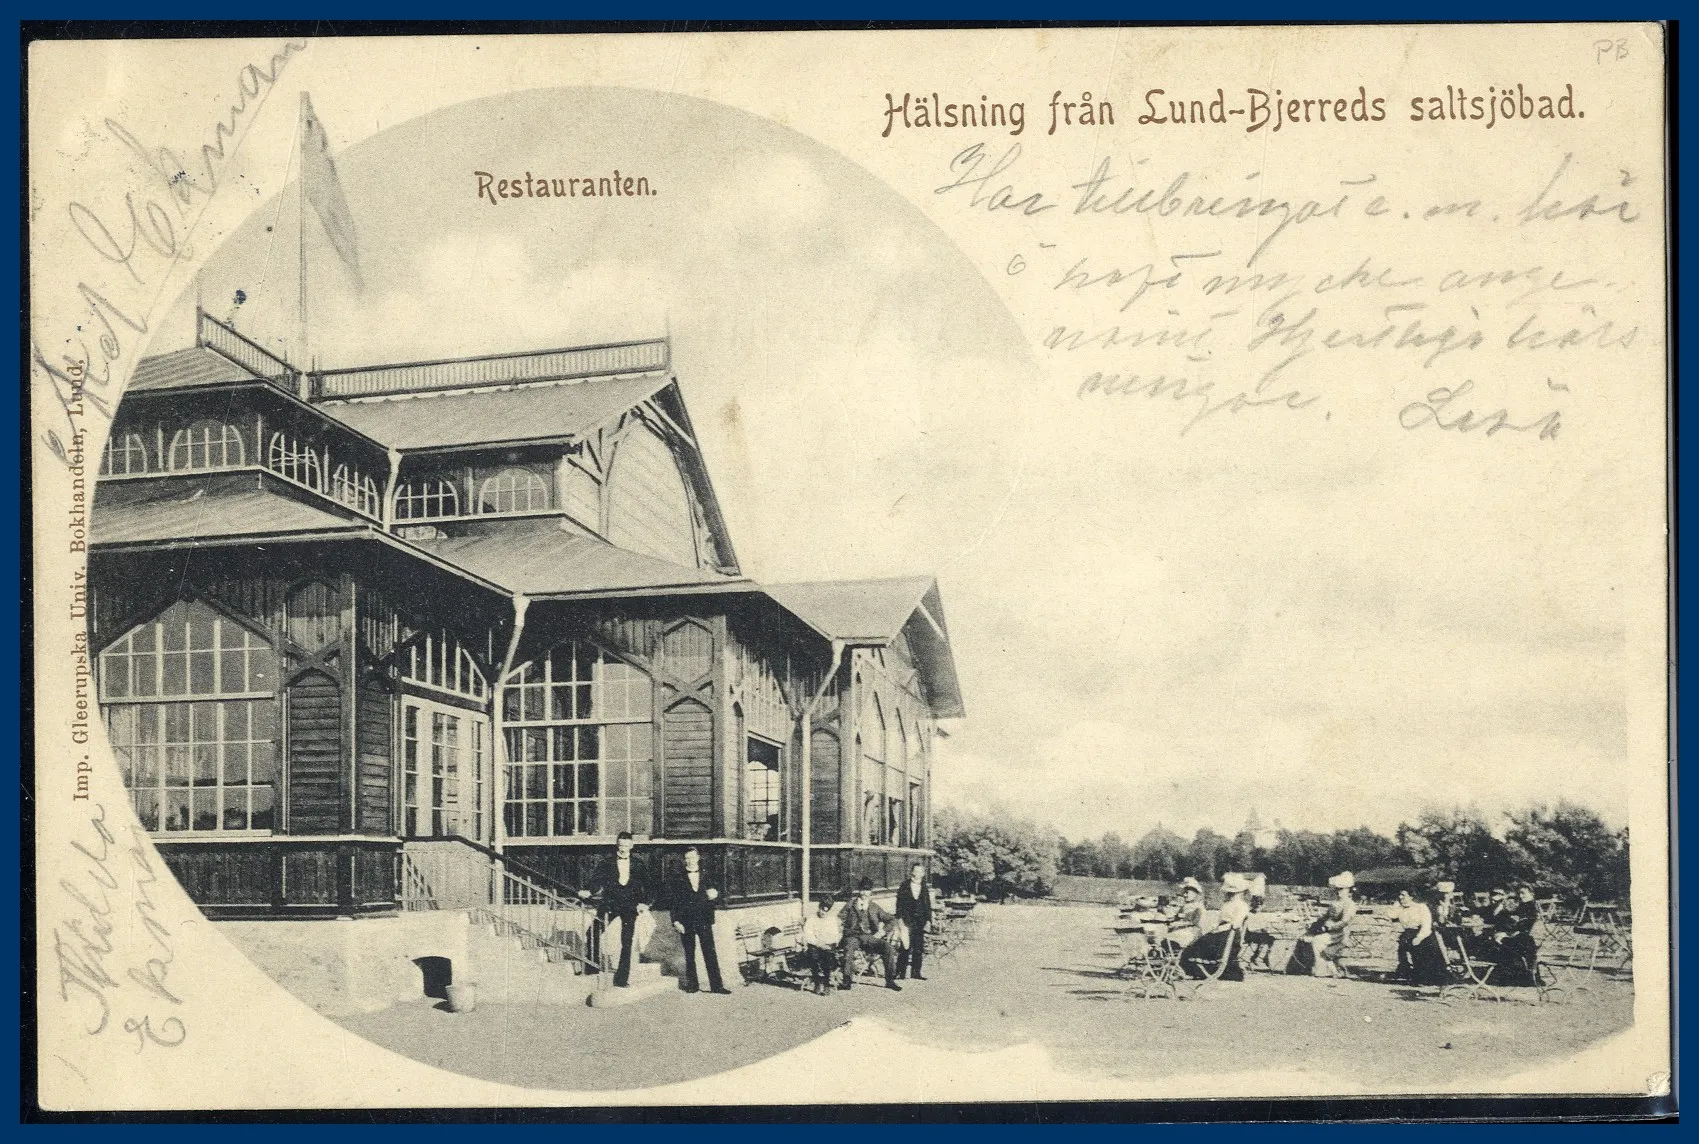 PB
Hälsning från Lund-Bjerreds saltsjöbad.
Restauranten.
Har tillbringat e. m. här
o haft mycke ange-
nämt. Hjertliga häls
ningar.
Ekman
Imp. Gleerupska Univ. Bokhandeln, Lund.
Thilda
Ekman